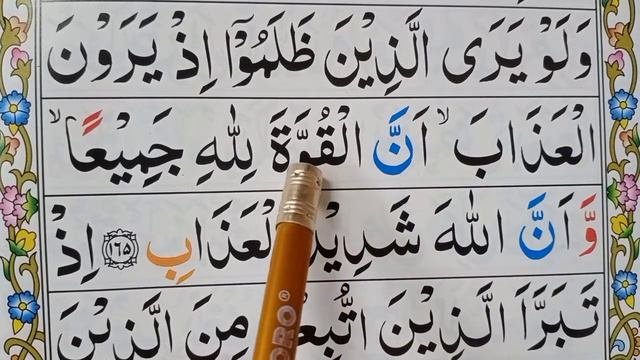 وَلَوْ يَرَى الَّذِيْنَ ظَلَمُوْٓا اِذْ يَرَوْنَ
الْعَذَابَ ۙ اَنَّ الْقُوَّةَ لِلّٰهِ جَمِيْعًا ۙ
وَّ اَنَّ اللّٰهَ شَدِيْدُ الْعَذَابِ ﴿۱۶۵﴾ اِذْ
تَبَرَّاَ الَّذِيْنَ اتُّبِعُوْا مِنَ الَّذِيْنَ
ORO®